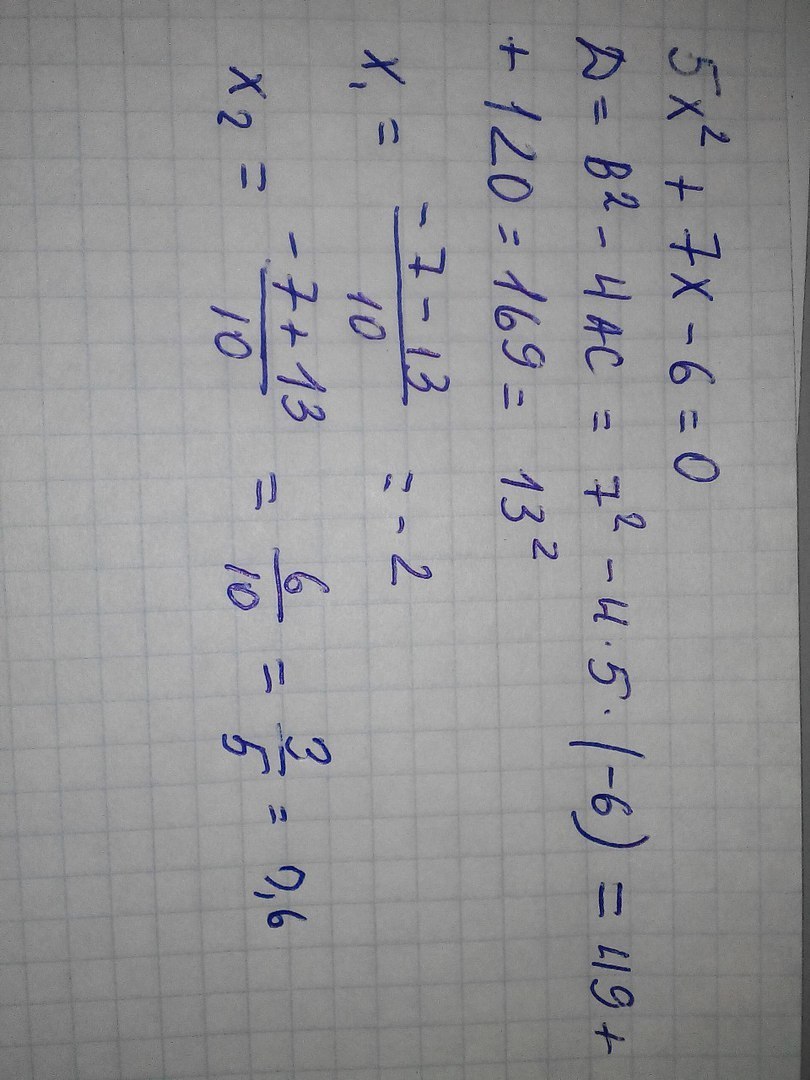 5x² + 7x - 6 = 0
D = B² - 4AC = 7² - 4 · 5 · (-6) = 49 +
+ 120 = 169 = 13²
x₁ = (-7 - 13)/10 = -2
x₂ = (-7 + 13)/10 = 6/10 = 3/5 = 0,6